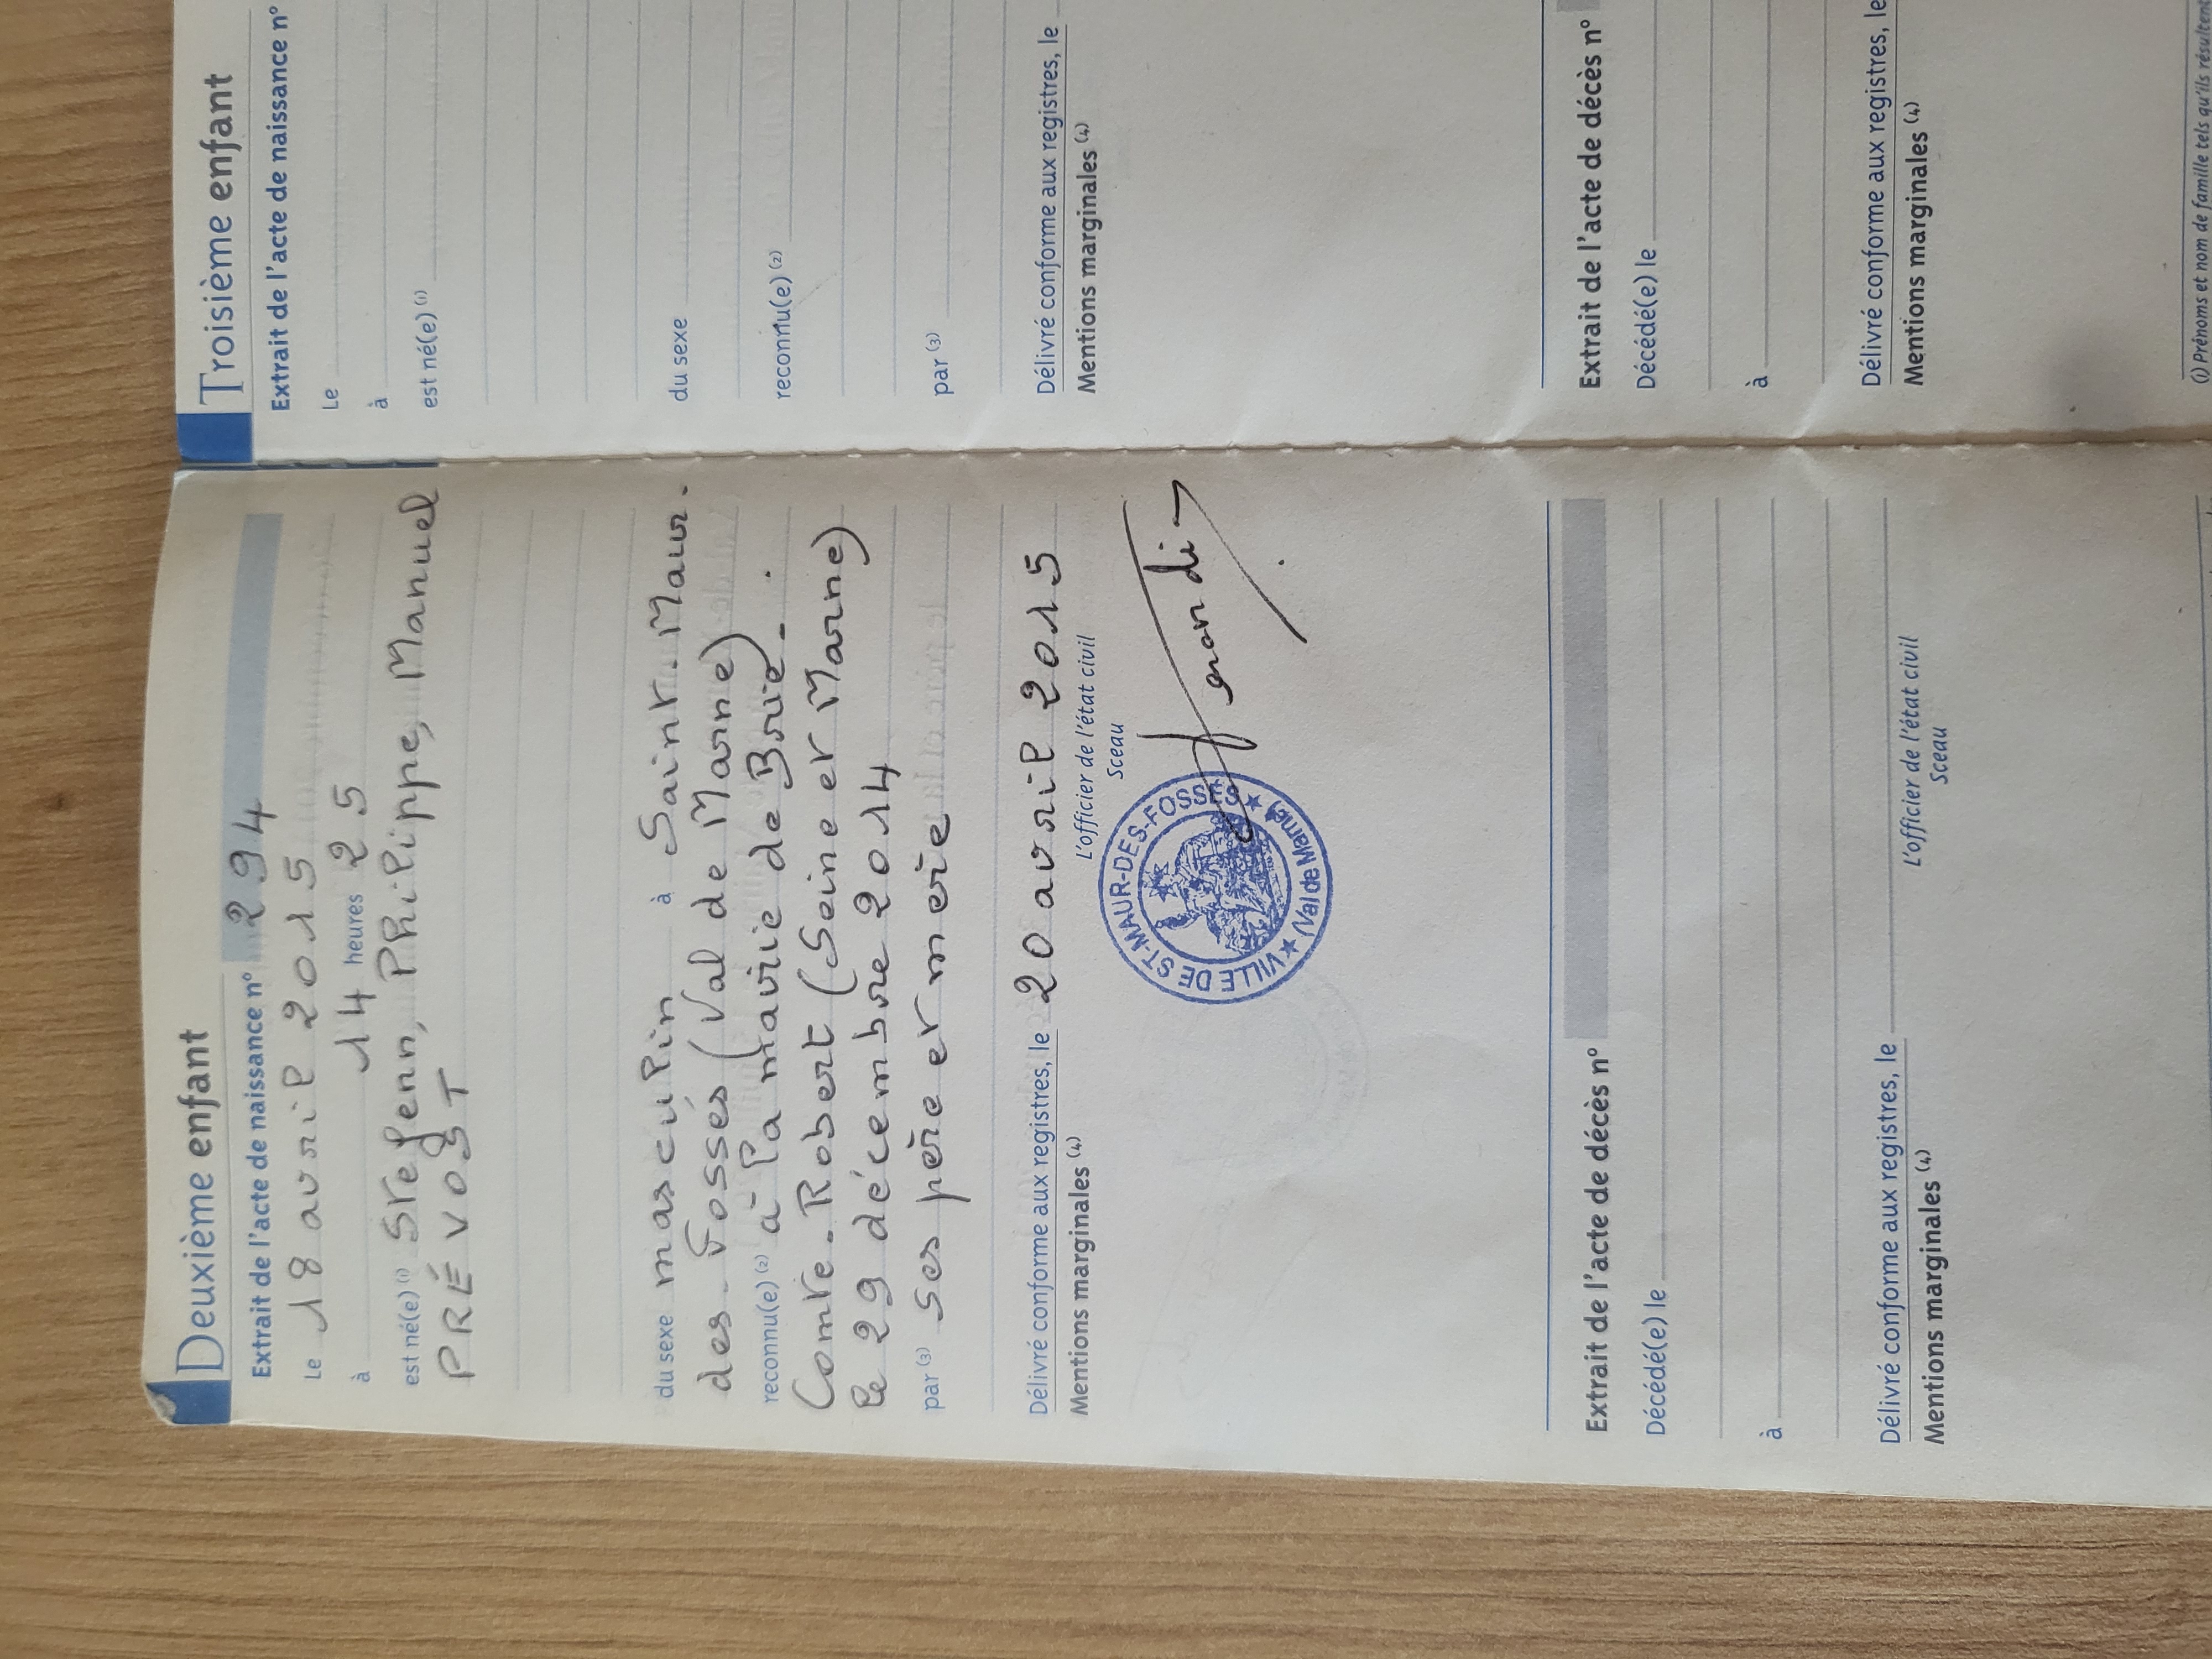 Deuxième enfant
Extrait de l'acte de naissance n° 294
Le 18 avril 2015
à 14 heures 25
est né(e) (1) Stefenn, Philippe, Manuel
PRÉVOST
du sexe masculin à Saint-Maur-
des-Fossés (Val de Marne)
reconnu(e) (2) à la mairie de Brie-
Comte-Robert (Seine et Marne)
le 29 décembre 2014
par (3) ses père et mère
Délivré conforme aux registres, le 20 avril 2015
Mentions marginales (4)
L'officier de l'état civil
Sceau
VILLE DE ST-MAUR-DES-FOSSÉS
(Val de Marne)
Extrait de l'acte de décès n°
Décédé(e) le
à
Délivré conforme aux registres, le
Mentions marginales (4)
L'officier de l'état civil
Sceau
Troisième enfant
Extrait de l'acte de naissance n°
Le
à
est né(e) (1)
du sexe
reconnu(e) (2)
par (3)
Délivré conforme aux registres, le
Mentions marginales (4)
Extrait de l'acte de décès n°
Décédé(e) le
à
Délivré conforme aux registres, le
Mentions marginales (4)
(1) Prénoms et nom de famille tels qu'ils résultent